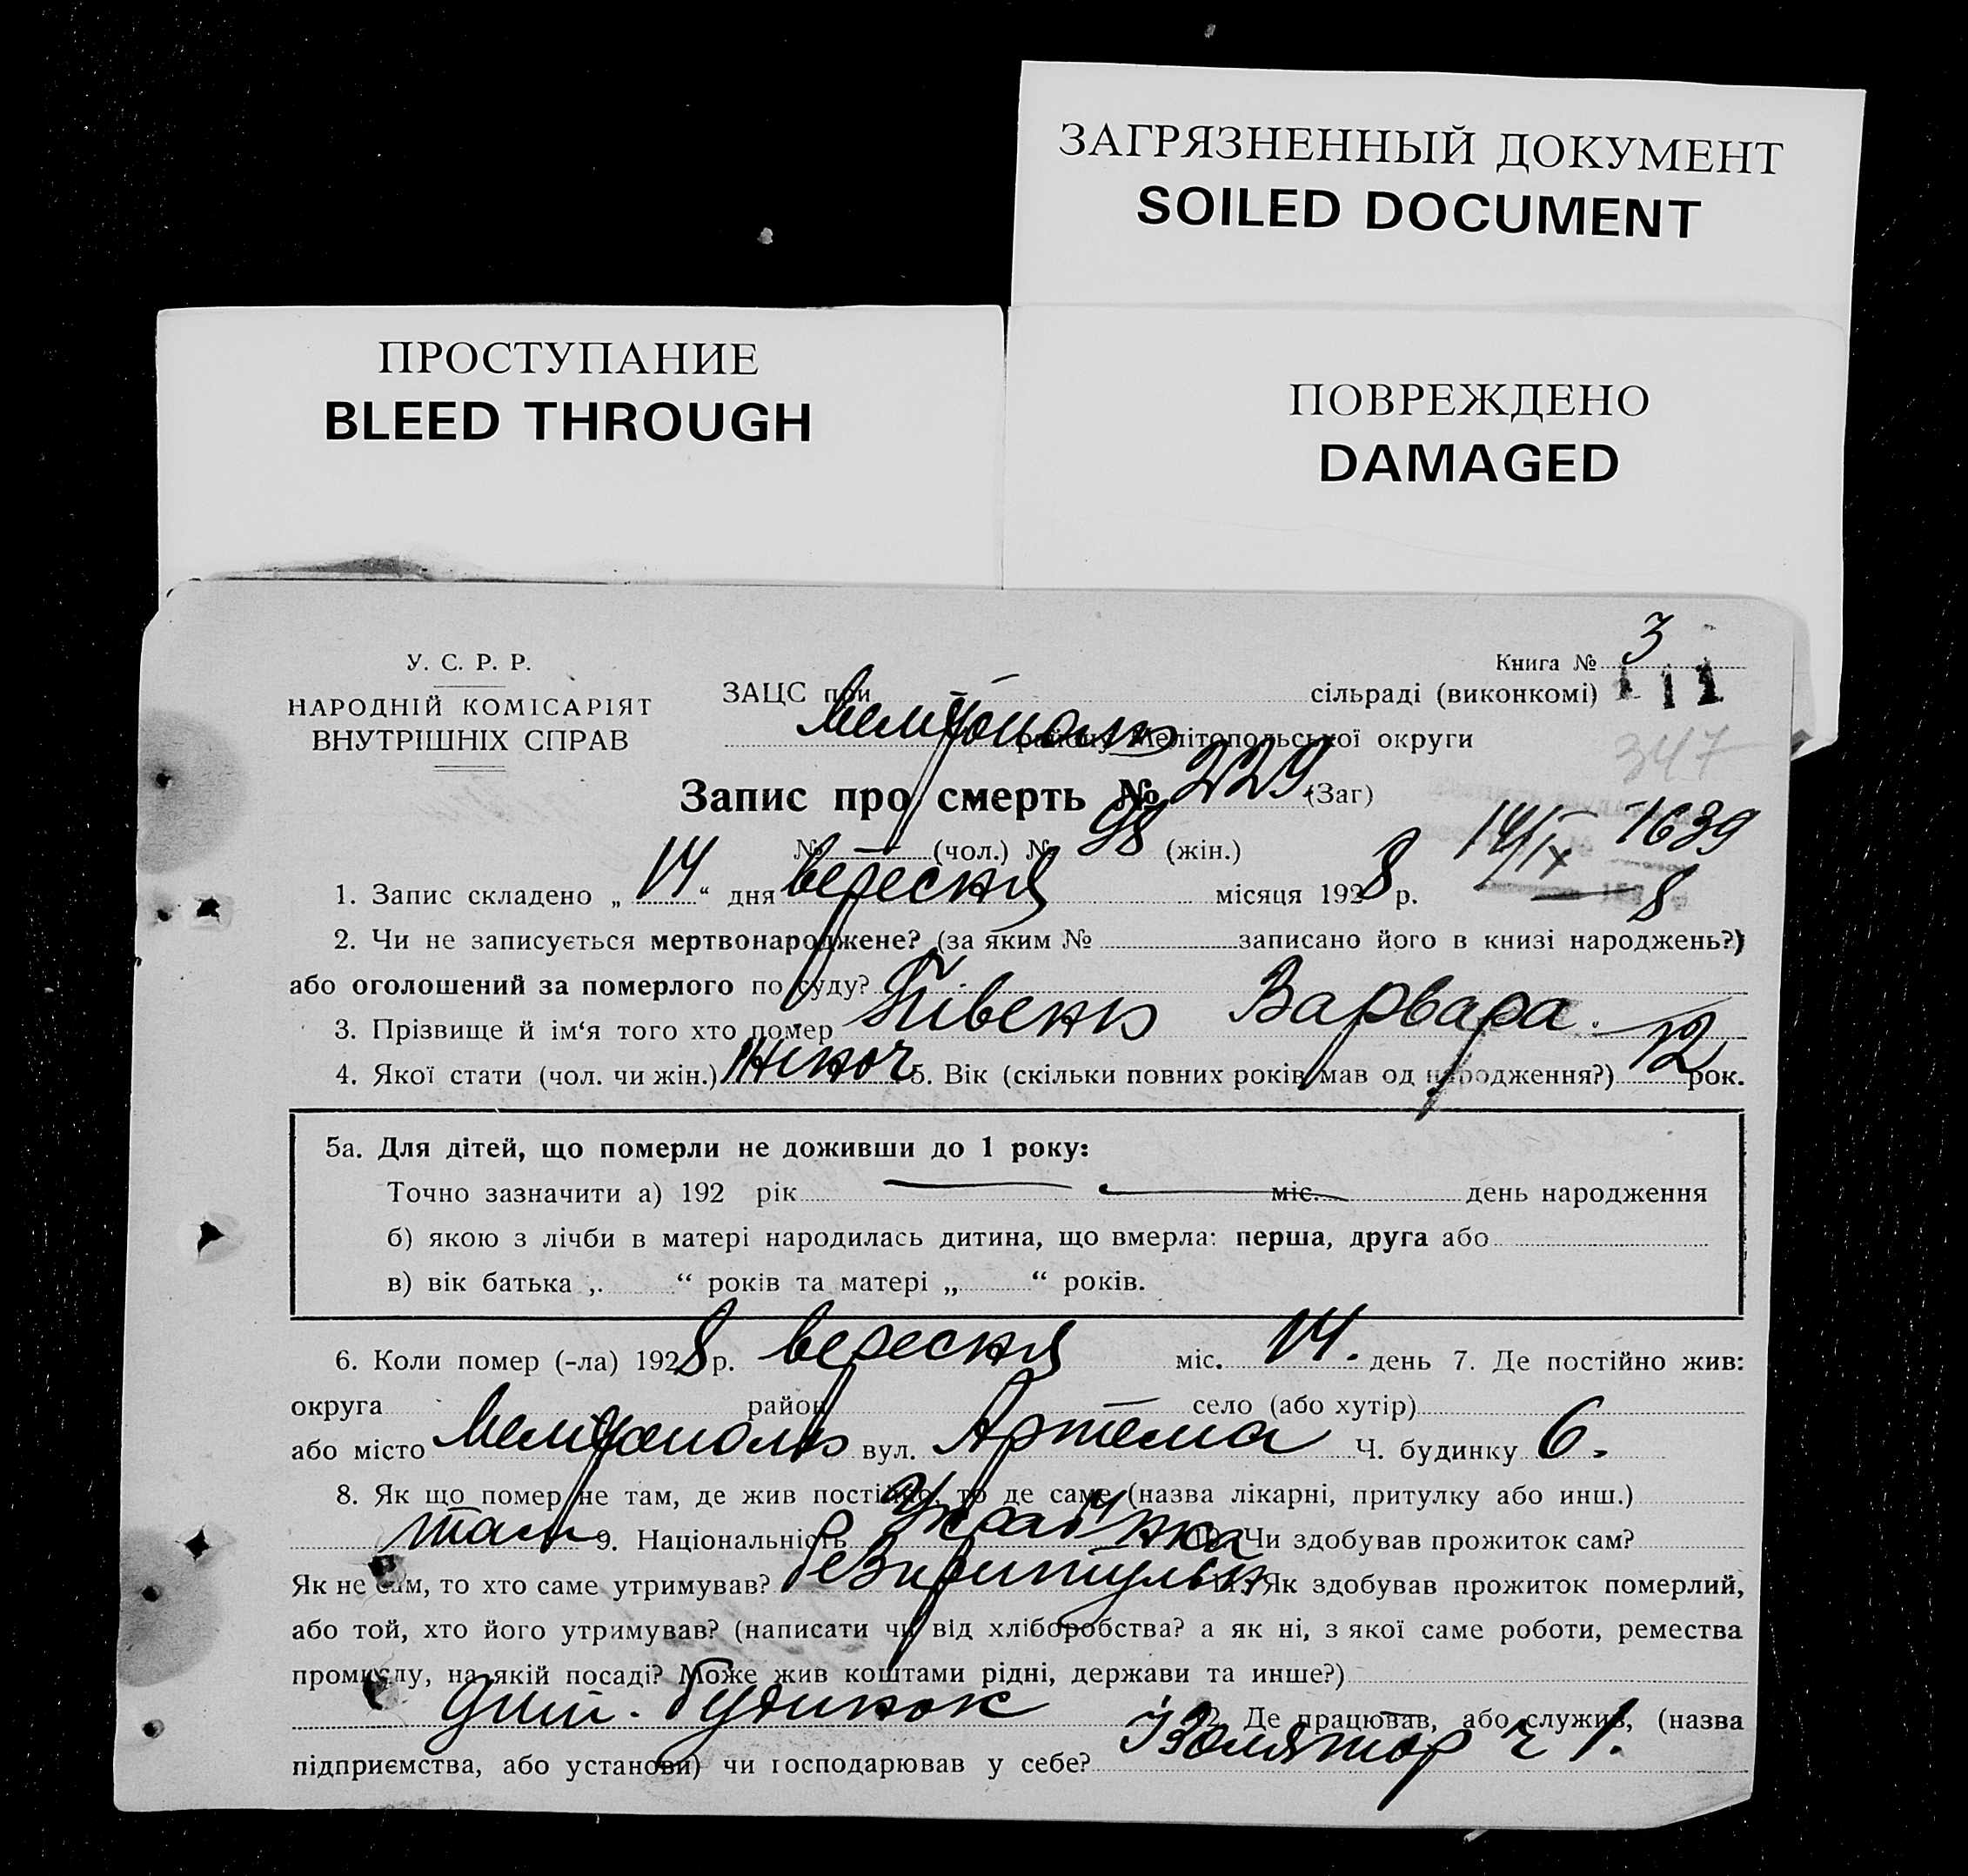 ЗАГРЯЗНЕННЫЙ ДОКУМЕНТ
SOILED DOCUMENT
ПРОСТУПАНИЕ
BLEED THROUGH
ПОВРЕЖДЕНО
DAMAGED
У. С. Р. Р.
НАРОДНІЙ КОМІСАРІЯТ
ВНУТРІШНІХ СПРАВ
Книга № 3
ЗАЦС при сільраді (виконкомі) 111
Мелітополь району Мелітопольської округи
347
Запис про смерть № 229 (Заг)
№ — (чол.) № 98 (жін.)
14/IX 1639
8
1. Запис складено „ 14 “ дня вересня місяця 1928 р.
2. Чи не записується мертвонароджене? (за яким № записано його в книзі народжень?)
або оголошений за померлого по суду?
3. Прізвище й ім‘я того хто помер Півень Варвара.
4. Якої стати (чол. чи жін.) жіноч 5. Вік (скільки повних років мав од народження?) 12 рок.
5а. Для дітей, що померли не доживши до 1 року:
Точно зазначити а) 192 рік міс. день народження
б) якою з лічби в матері народилась дитина, що вмерла: перша, друга або
в) вік батька „ “ років та матері „ “ років.
6. Коли помер (-ла) 1928 р. вересня міс. 14. день 7. Де постійно жив:
округа район село (або хутір)
або місто Мелітополь вул. Артема Ч. будинку 6.
8. Як що помер не там, де жив постійно, то де саме (назва лікарні, притулку або инш.)
там 9. Національність Українка 10. Чи здобував прожиток сам?
Як не сам, то хто саме утримував? безпритульн 11. Як здобував прожиток померлий,
або той, хто його утримував? (написати чи від хліборобства? а як ні, з якої саме роботи, ремества
промислу, на якій посаді? Може жив коштами рідні, держави та инше?)
дит. будинок Де працював, або служив, (назва
підприємства, або установи) чи господарював у себе? Ізолятор ч 1.